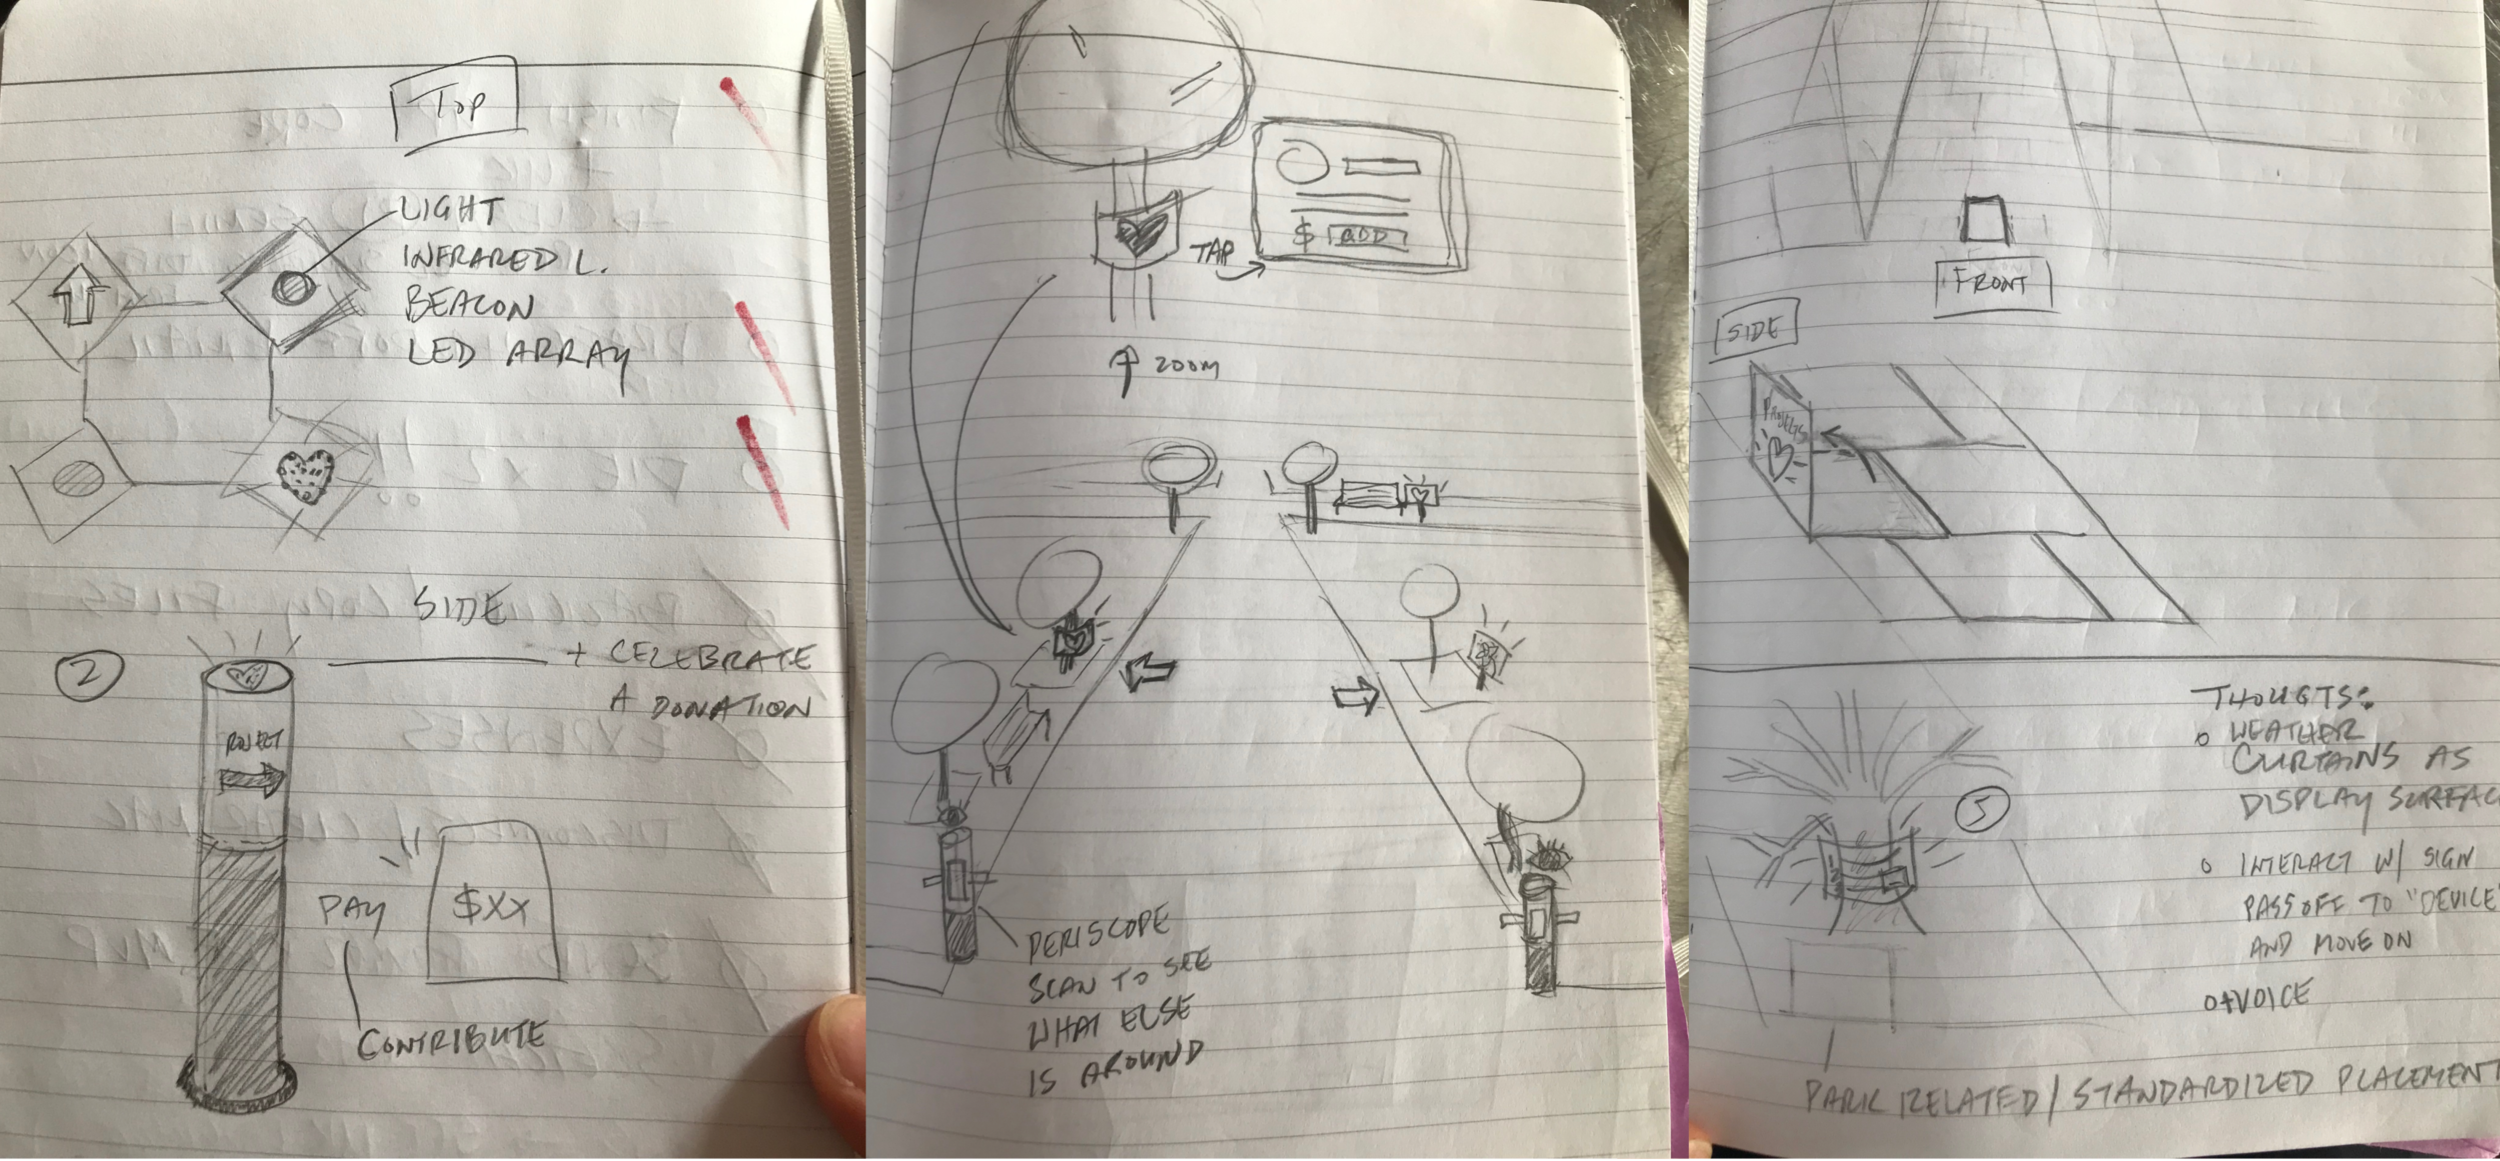 TOP
LIGHT
INFRARED L.
BEACON
LED ARRAY
SIDE
2
+ CELEBRATE
A DONATION
PAY
$XX
CONTRIBUTE
$ ADD
TAP
ZOOM
PERISCOPE
SCAN TO SEE
WHAT ELSE
IS AROUND
FRONT
SIDE
PROJECTS
THOUGTS:
o WEATHER
CURTAINS AS
DISPLAY SURFAC
o INTERACT W/ SIGN
PASS OFF TO "DEVICE"
AND MOVE ON
o +VOICE
5
PARK RELATED / STANDARDIZED PLACEMENT